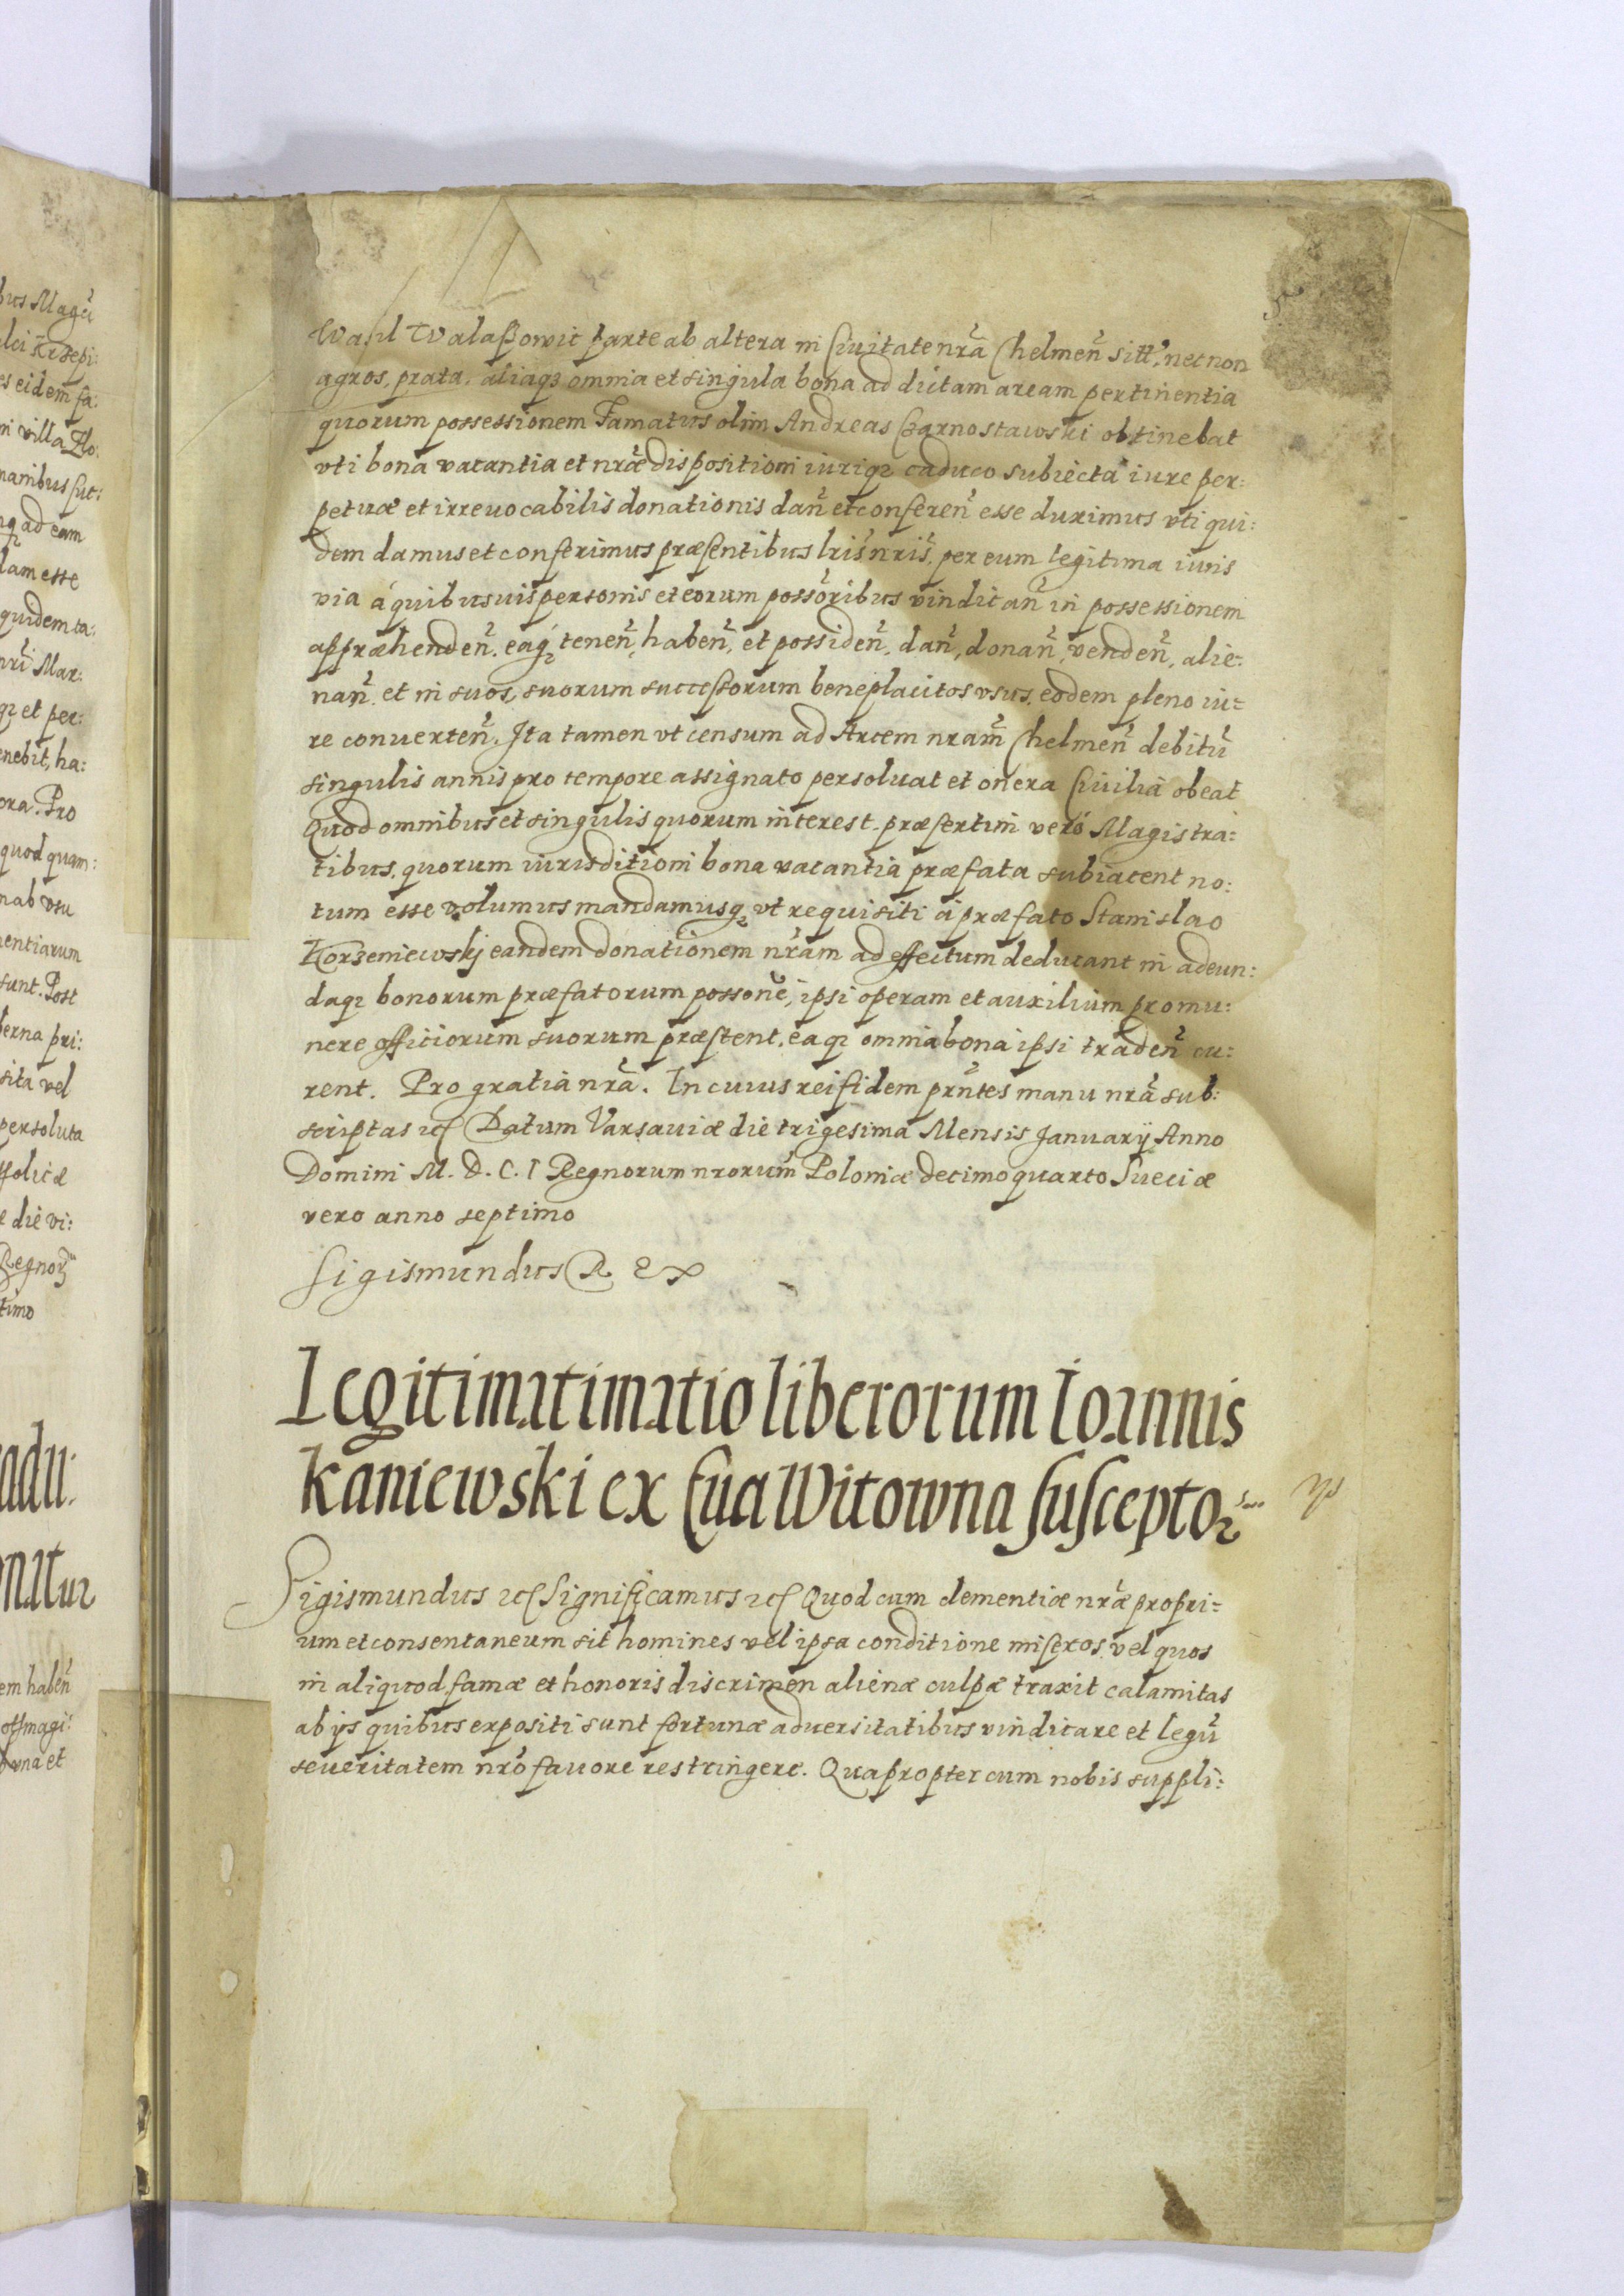 bus Magñ
es eidem fa:
in villa
manibus suc:
ad eam
dam esse
quidem ta:
nr̃i Mar:
et per:
enebit, ha:
ora. Pro
quod quam:
nab vsu
entiarum
sunt. Post
erna pri:
sita vel
persoluta
e die vi:
Regnoꝝ
timo
adu:
onatur
em habeñ
magi:
una et
5
Wasil Walaßowic parte ab altera in Ciuitate nr̃a Chelmeñ sitt̃, nec non
agros, prata, aliaqꝫ omnia et singula bona ad dictam aream pertinentia
quorum possessionem Famatus olim Andreas Czarnostawski obtinebat
vti bona vacantia et nr̃æ dispositioni iuriqꝫ caduco subiecta iure per:
petuæ et irreuocabilis donationis dañ et confereñ esse duximus vti qui:
dem damus et conferimus præsentibus lr̃is nr̃is, per eum legitima iuris
via à quibusuis personis et eorum possõribus vindicañ in possessionem
appræhendeñ. eaqꝫ teneñ, habeñ, et possideñ, dañ, donañ, vendeñ, alie:
nañ. et in suos, suorum successorum beneplacitos vsus, eodem pleno iu:
re conuerteñ. Ita tamen vt censum ad Arcem nr̃am Chelmeñ debitũ
singulis annis pro tempore assignato persoluat et onera Ciuilia obeat
Quod omnibus et singulis quorum interest, præsertim verò Magistra:
tibus, quorum iurisditioni bona vacantia præfata subiacent no:
tum esse volumus mandamusqꝫ vt requisiti à præfato Stanislao
Korzeniewskj eandem donationem nr̃am ad effectum deducant in adeun:
daqꝫ bonorum præfatorum possonẽ, ipsi operam et auxilium pro mu:
nere officiorum suorum præstent, eaqꝫ omnia bona ipsi tradeñ cu:
rent. Pro gratia nr̃a. In cuius rei fidem pr̃ntes manu nr̃a sub:
scriptas ꝛc Datum Varsauiæ die trigesima Mensis Januarij Anno
Domini M. D. C. I Regnorum nr̃orum Poloniæ decimoquarto Sueciæ
vero anno septimo
Sigismundus Rex
Legitimatimatio liberorum Ioannis
Kaniewski ex Eua Witowna susceptoꝝ
Sigismundus ꝛc Significamus ꝛc Quod cum clementiæ nr̃æ propri:
um et consentaneum sit homines vel ipsa conditione miseros, vel quos
in aliquod famæ et honoris discrimen alienæ culpæ traxit calamitas
ab ijs quibus expositi sunt fortunæ aduersitatibus vindicare et legũ
seueritatem nr̃o fauore restringere. Quapropter cum nobis suppli: